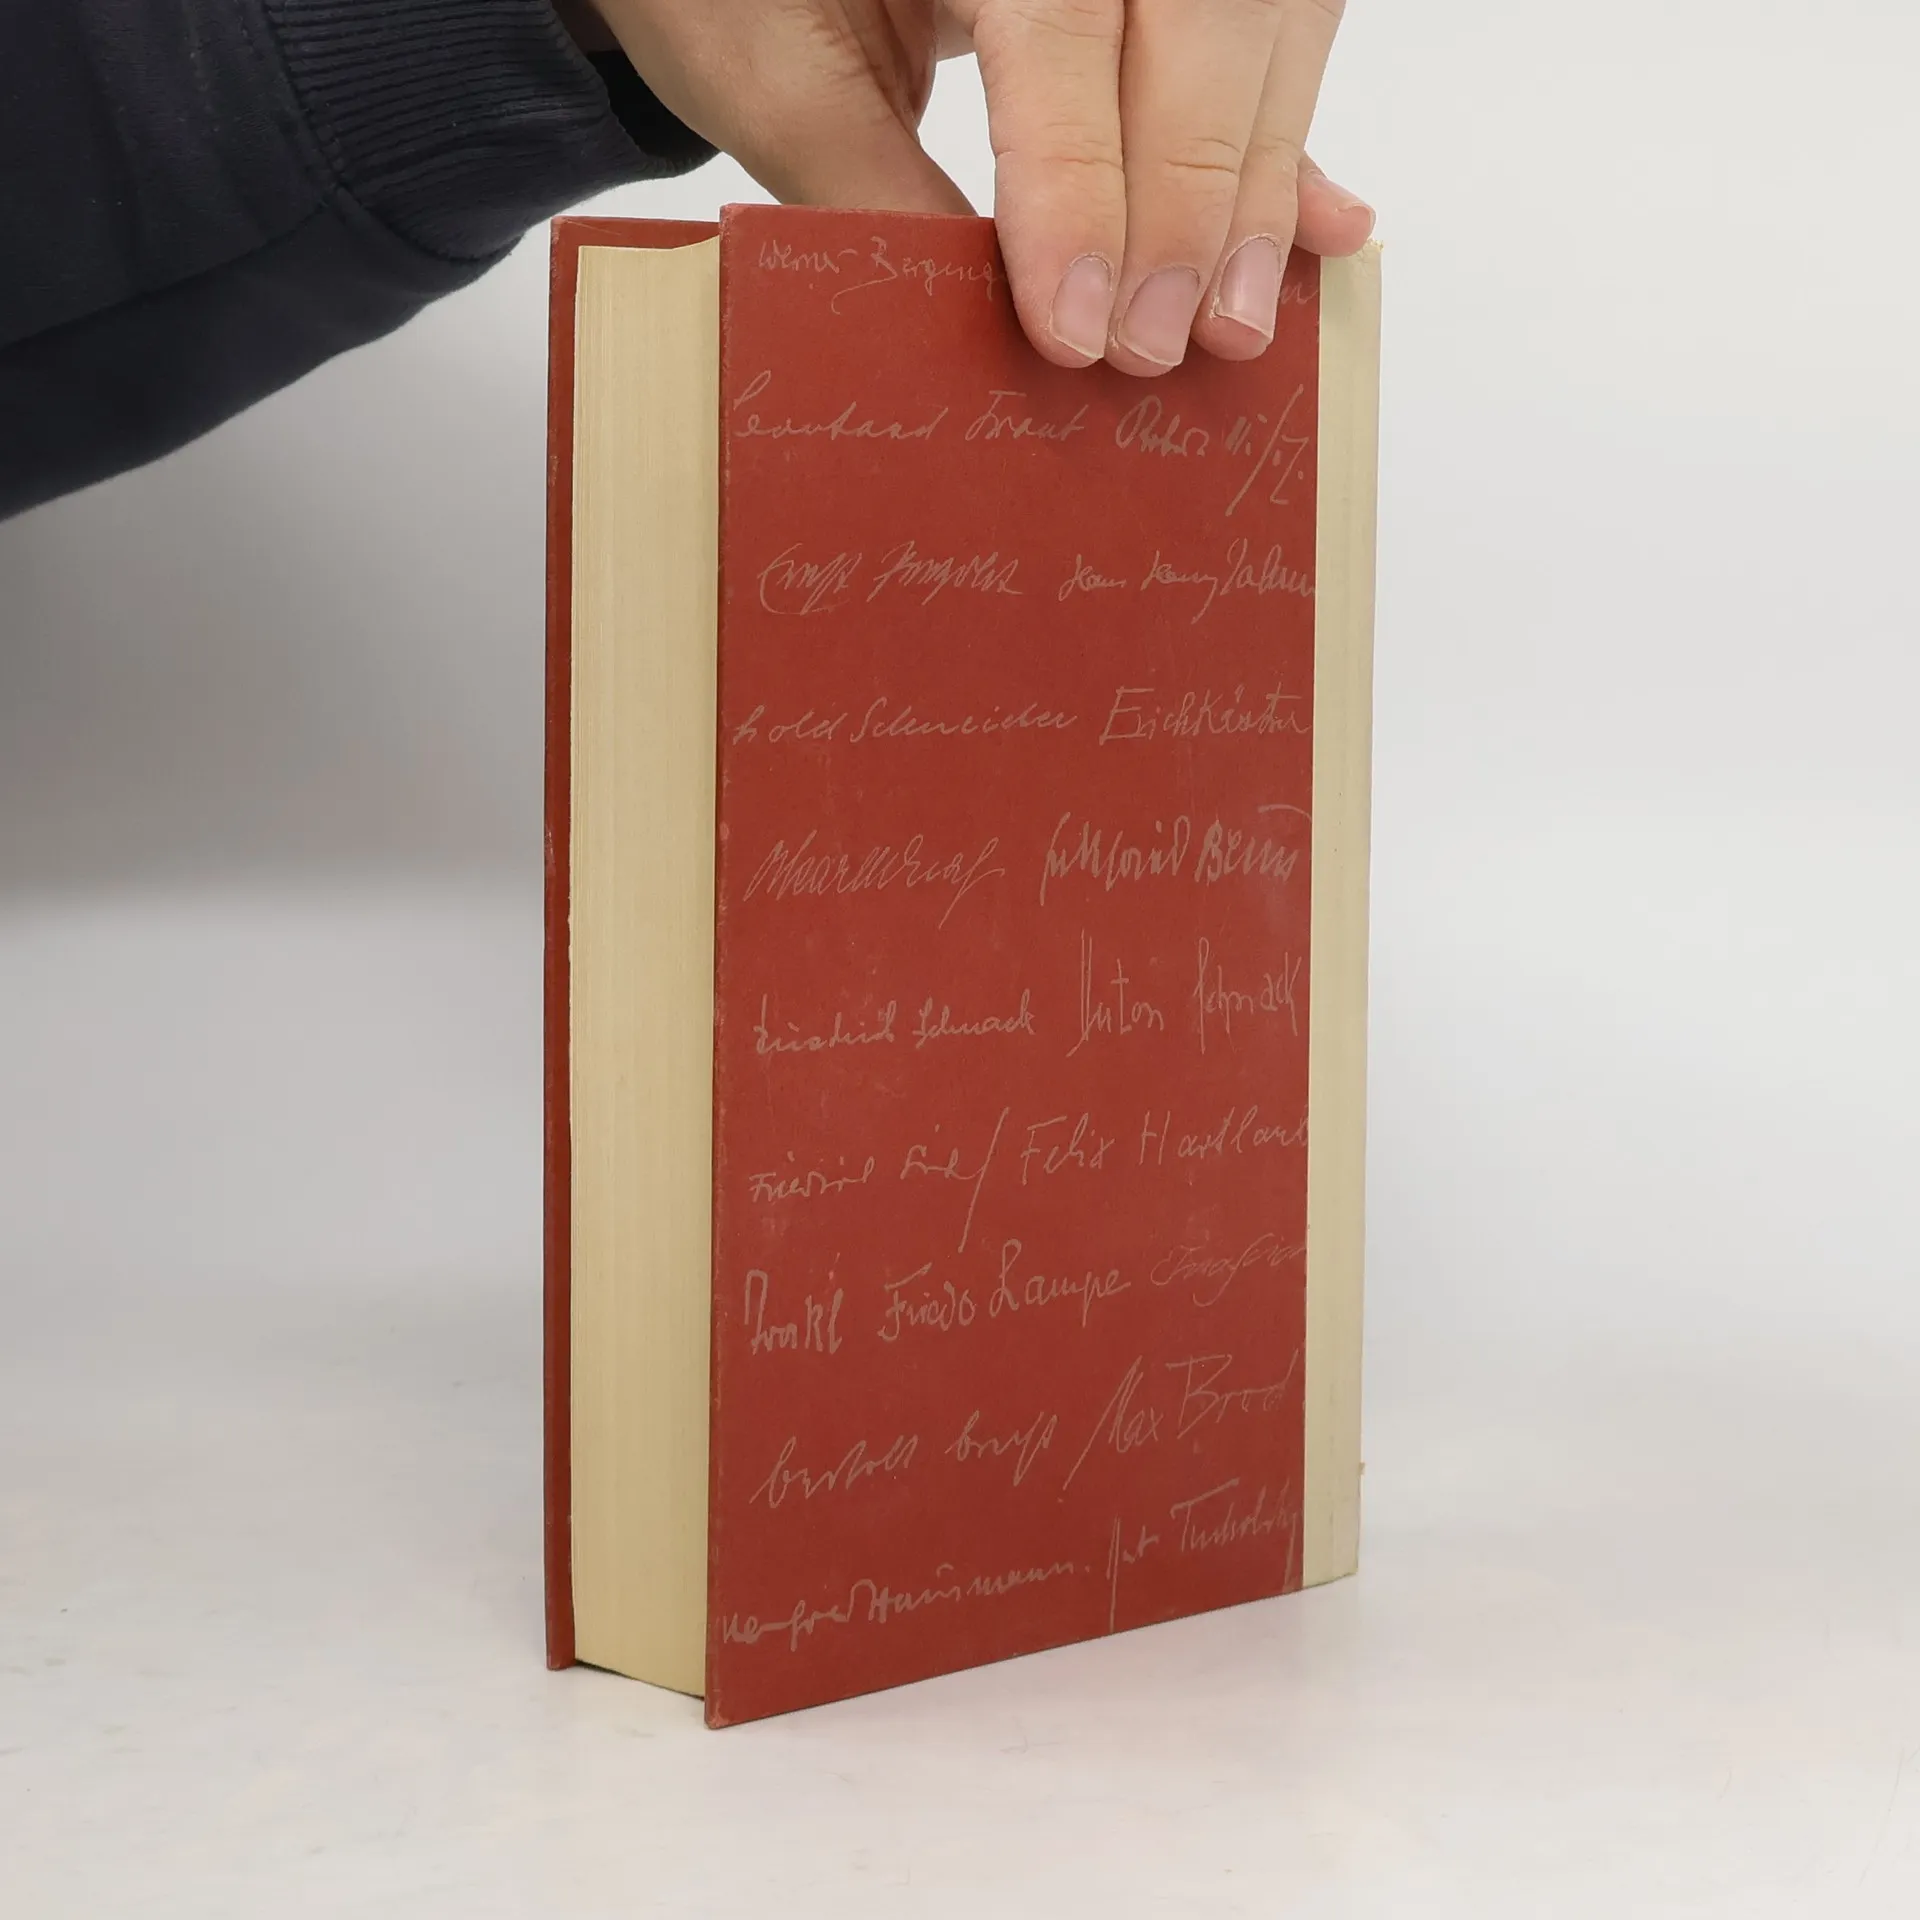 Werner Bergeng
Leonhard Frank
Ernst Penzoldt Hans Henny Jahnn
hold Schneider Erich Kästner
Gottfried Benn
Friedrich Schnack Anton Schnack
Friedrich Felix Hartlaub
Trakl Friedo Lampe
bertolt brecht Max Brod
Manfred Hausmann. Kurt Tucholsky